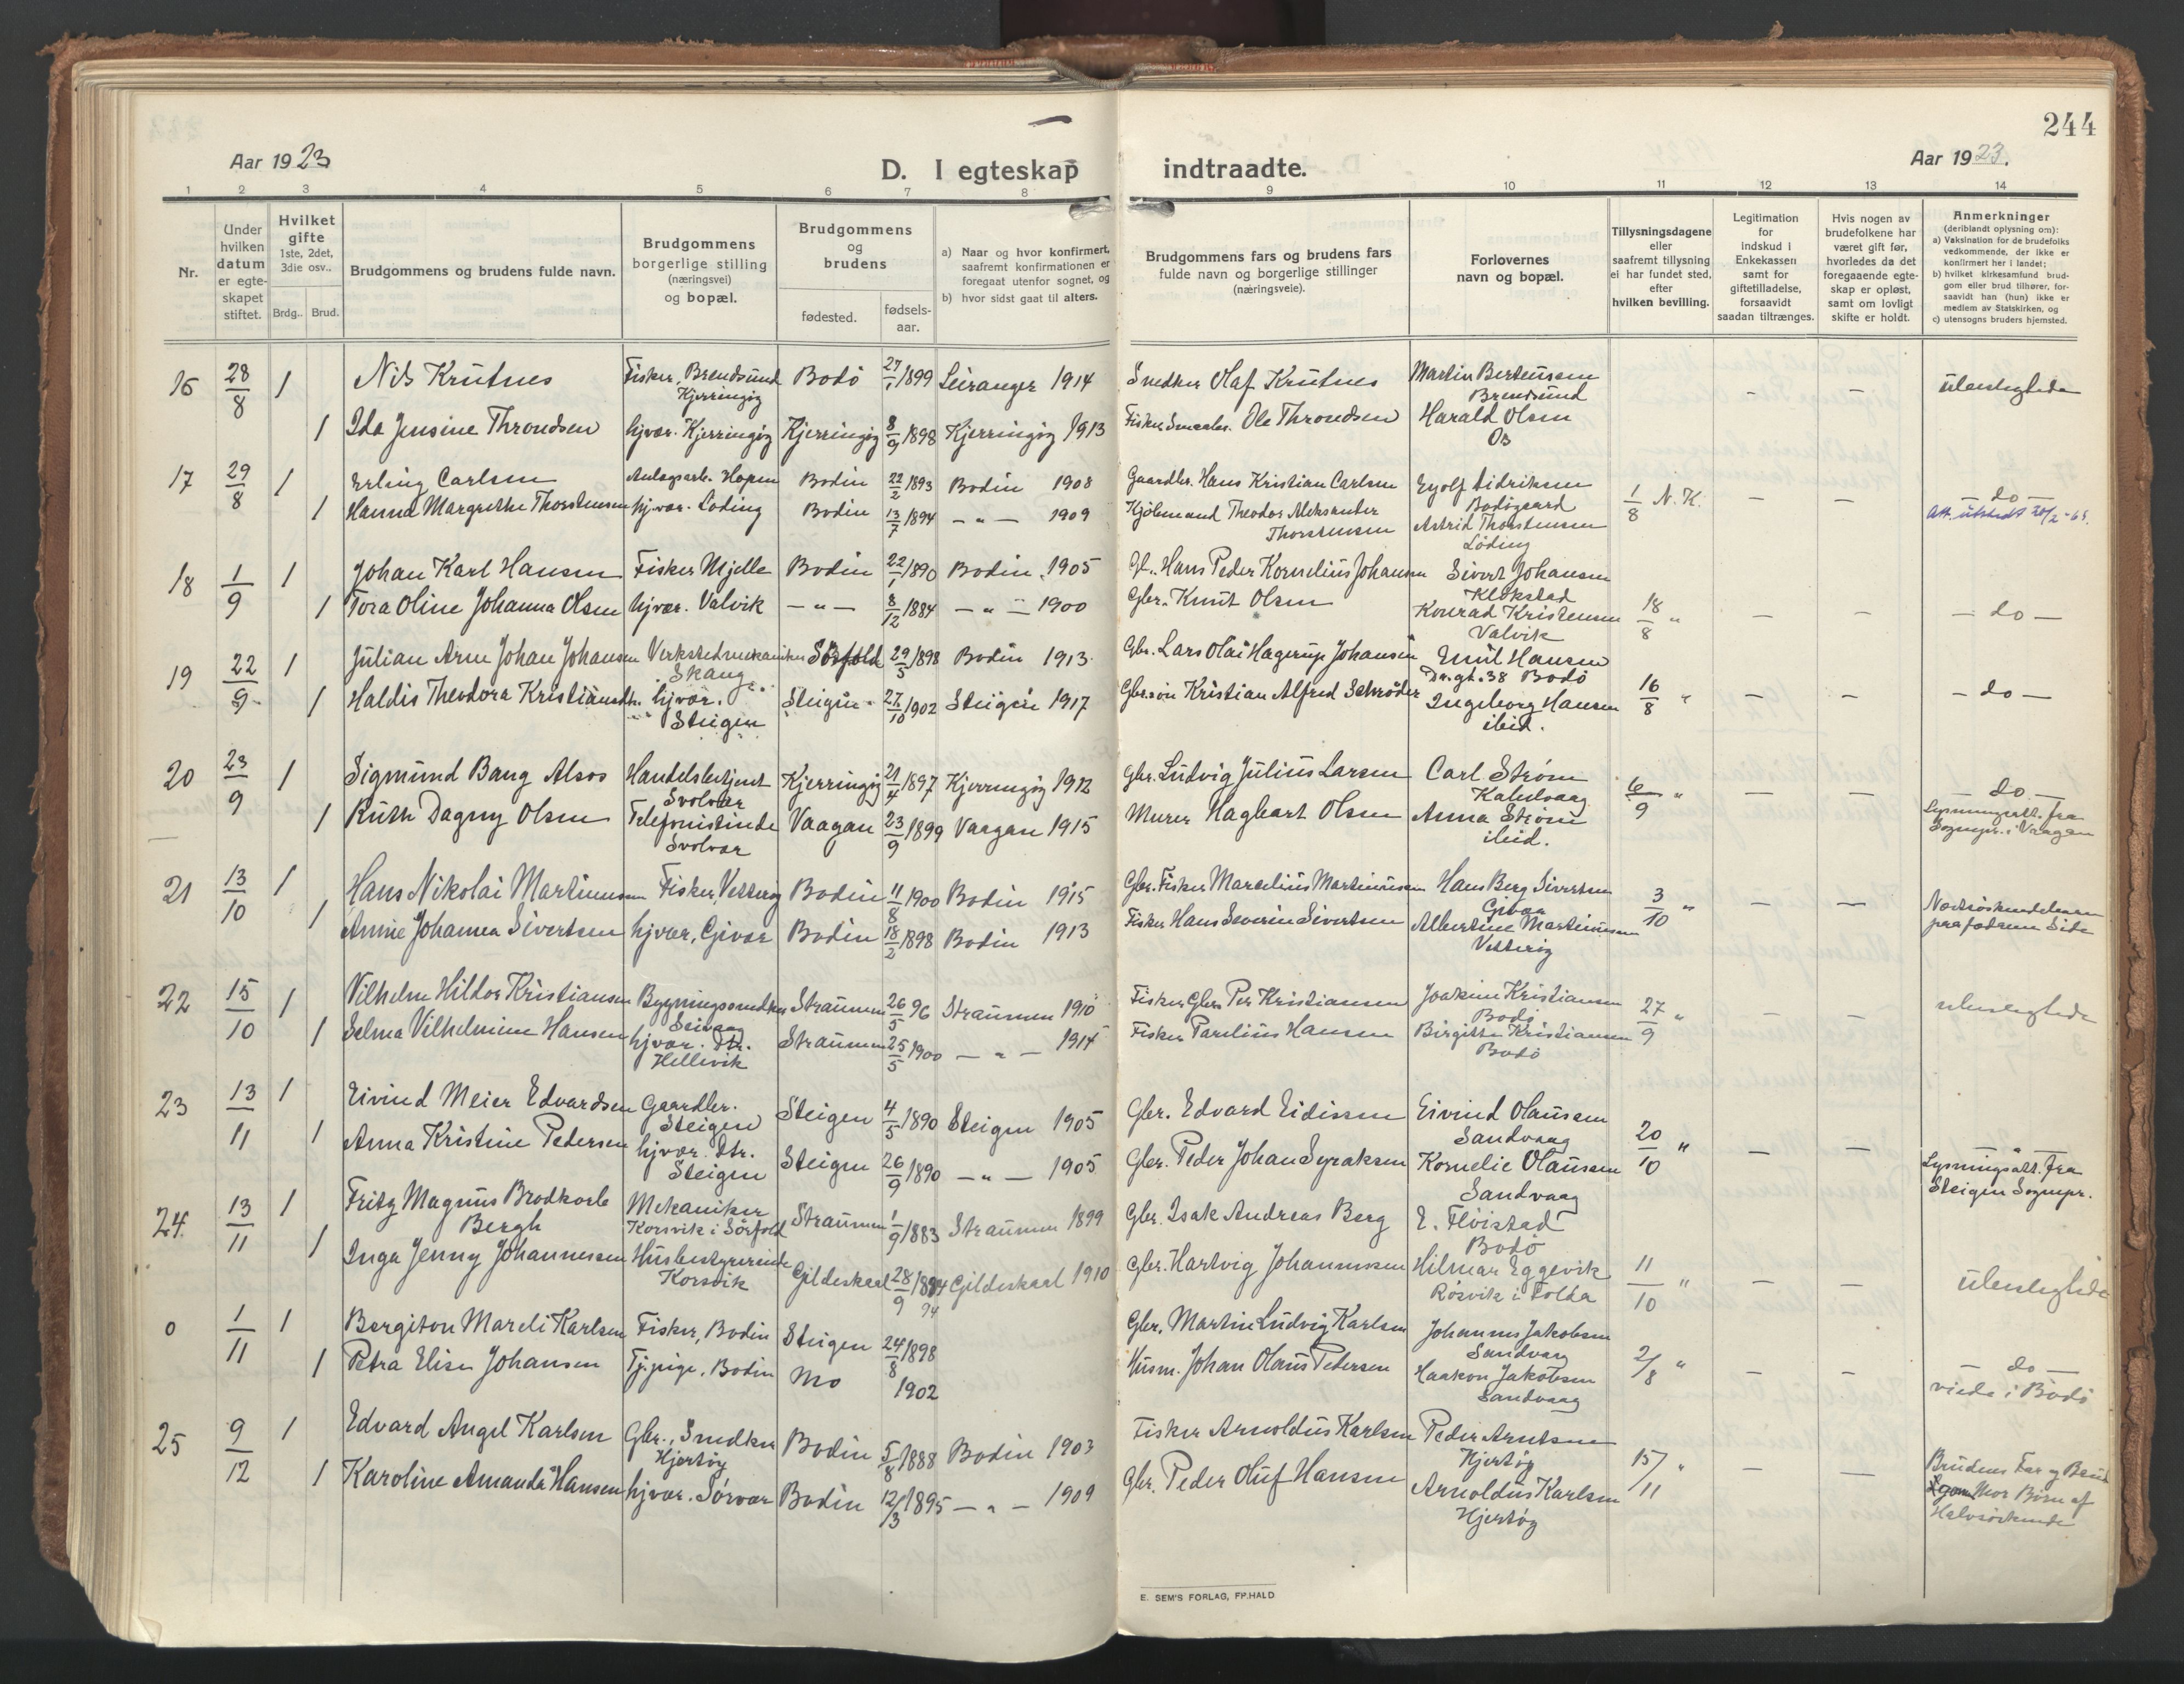 244
Aar 1923
D. I egteskap indtraadte.
Aar 1923.
1 2 3 4 5 6 7 8 9 10 11 12 13 14
Nr.
Under hvilken datum er egteskapet stiftet.
Hvilket gifte 1ste, 2det, 3die osv..
Brdg.. Brud.
Brudgommens og brudens fulde navn.
Brudgommens borgerlige stilling (næringsvei) og bopæl.
Brudgommens og brudens
fødested. fødsels-aar.
a) Naar og hvor konfirmert, saafremt konfirmationen er foregaat utenfor sognet, og
b) hvor sidst gaat til alters.
Brudgommens fars og brudens fars fulde navn og borgerlige stillinger (næringsveie).
Forlovernes navn og bopæl.
Tillysningsdagene eller saafremt tillysning ei har fundet sted, efter hvilken bevilling.
Legitimation for indskud i Enkekassen samt for giftetilladelse, forsaavidt saadan tiltrænges.
Hvis nogen av brudefolkene har været gift før, hvorledes da det foregaaende egteskap er opløst, samt om lovligt skifte er holdt.
Anmerkninger (deriblandt oplysning om):
a) Vaksination for de brudefolks vedkommende, der ikke er konfirmert her i landet;
b) hvilket kirkesamfund brudgom eller brud tilhører, forsaavidt han (hun) ikke er medlem av Statskirken, og
c) utensogns bruders hjemsted.
16 28/8 1 Nils Krutnes Fisker, Brendsund Kjerringøy Bodö 27/1 1899 Leiranger 1914 Snedker Olaf Krutnes Martin Berteussen Brendsund — — ubeslegtede
1 Ida Jensine Throndsen hjvær. Kjerringøy Kjerringøy 8/9 1898 Kjerringøy 1913 Fisker Ole Throndsen Harald Olsen Os
17 29/8 1 Erling Carlsen Anlegsarb. Hopen Bodin 22/2 1893 Bodin 1908 Gaardbr. Hans Kristian Carlsen Eyolf Didriksen Bodøgaard 1/8 N. K. — — — do —
1 Hanna Margrethe Thorstensen hjvær. Löding Bodin 13/7 1894 — " — 1909 Kjöbmand Theodor Aleksander Thorstensen Astrid Thorstensen Löding Att. utstedt 20/2-65.
18 1/9 1 Johan Karl Hansen Fisker Mjelle Bodin 22/1 1890 Bodin 1905 Gbr. Hans Peder Kornelius Johansen Sivert Johansen Klokstad
1 Tora Oline Johanna Olsen hjvær. Valvik — " — 8/12 1884 — " — 1900 Gbr. Knut Olsen Konrad Kristensen Valvik 18/8 " — — — do —
19 22/9 1 Julian Arne Johan Johansen Verkstedmekaniker Skaug Sörfold 29/5 1898 Bodin 1913 Gbr. Lars Olai Hagerup Johansen Emil Hansen Dr.gt. 38 Bodö
1 Haldis Theodora Kristiansdtr. hjvær. Steigen Steigen 27/10 1902 Steigen 1917 Gbr.søn Kristian Alfred Schrøder Ingeborg Hansen ibid. 16/8 " — — — do —
20 23/9 1 Sigmund Bang Alsos Handelsbetjent Svolvær Kjerringøy 21/4 1897 Kjerringøy 1912 Gbr. Ludvig Julius Larsen Carl Strøm Kabelvaag 6/9 " — — — do —
1 Ruth Dagny Olsen Telefonistinde Svolvær Vaagan 23/9 1899 Vaagan 1915 Murer Hagbart Olsen Anna Strøm ibid. Lysningsatt. fra Sognepr. i Vaagan
21 13/10 1 Hans Nikolai Martinussen Fisker, Vetterøy Bodin 11/8 1900 Bodin 1915 Gbr. Fisker Marcelius Martinussen Hans Berg Sivertsen Givær 3/10 " — — Nestsöskendebarn paa fædrene Side
1 Annie Johanna Sivertsen hjvær, Givær Bodin 18/2 1898 Bodin 1913 Fisker Hans Severin Sivertsen Albertine Martinussen Vetterøy
22 15/10 1 Vilhelm Hildor Kristiansen Bygningssnedker Seivaag Straumen 26/5 96 Straumen 1910 Fisker Gbr. Per Kristiansen Joakim Kristiansen Bodö 27/9 " — — ubeslegtede
1 Selma Vilhelmine Hansen hjvær. Dtr. Hellevik Straumen 25/5 1900 — " — 1914 Fisker Paulius Hansen Birgitte Kristiansen Bodö
23 13/11 1 Eivind Meier Edvardsen Gaardbr. Steigen Steigen 4/5 1890 Steigen 1905 Gbr. Edvard Eidissen Eivind Olaussen Sandvaag
1 Anna Kristine Pedersen hjvær. Dtr. Steigen Steigen 26/9 1890 — " — 1905 Gbr. Peder Johan Syraksen Kornelie Olaussen Sandvaag 20/10 " — — — " — Lysningsatt. fra Steigen Sognepr.
24. 13/11 1 Fritz Magnus Brodkorb Bergh Mekaniker Korsvik i Sörfold Straumen 1/9 1883 Straumen 1899 Gbr. Isak Andreas Berg E. Flöistad Bodö
1 Inga Jenny Johannessen Husbestyrerinde Korsvik Gildeskaal 28/9 1894 94 Gildeskaal 1910 Gbr. Hartvig Johannessen Hilmar Eggevik Rösvik i Folda 11/10 " — — ubeslegtede
0 1/11 1 Bergiton Mareli Karlsen Fisker, Bodin Steigen 24/8 1898 Gbr. Martin Ludvig Karlsen Johannes Jakobsen Sandvaag
1 Petra Elise Johansen Tj.pige, Bodin Mo 1902 Husm. Johan Olaus Pedersen Haakon Jakobsen Sandvaag 2/8 " — — — do — viede i Bodö
25 9/12 1 Edvard Angel Karlsen Gbr., Snedker Hjertøy Bodin 5/8 1888 Bodin 1903 Fisker Arnoldus Karlsen Peder Arntsen Hjertøy 15/11 " — — Brudens Far og Brudgom Mor Børn af Halvsöskende
1 Karoline Amanda Hansen hjvær. Sörvær Bodin 12/3 1895 — " — 1909 Gbr. Peder Oluf Hansen Arnoldus Karlsen Hjertøy
E. SEM'S FORLAG, FP.HALD